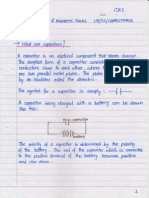 CH2
& MAGNETIC FIELDS
CAPACITANCE
→ What are capacitors?
A capacitor is an electrical component that stores charge.
The simplest form of a capacitor consists of
conductors close to each other, which
two parallel metal plates. The plates
by an insulator called the dielectric.
The symbol for a capacitor is simply:
A capacitor being charged with a battery can be drawn
like this:
The polarity of a capacitor is determined by the polarity
of the battery. The end which is connected
to the positive terminal of the battery becomes positive
and vice versa.
1